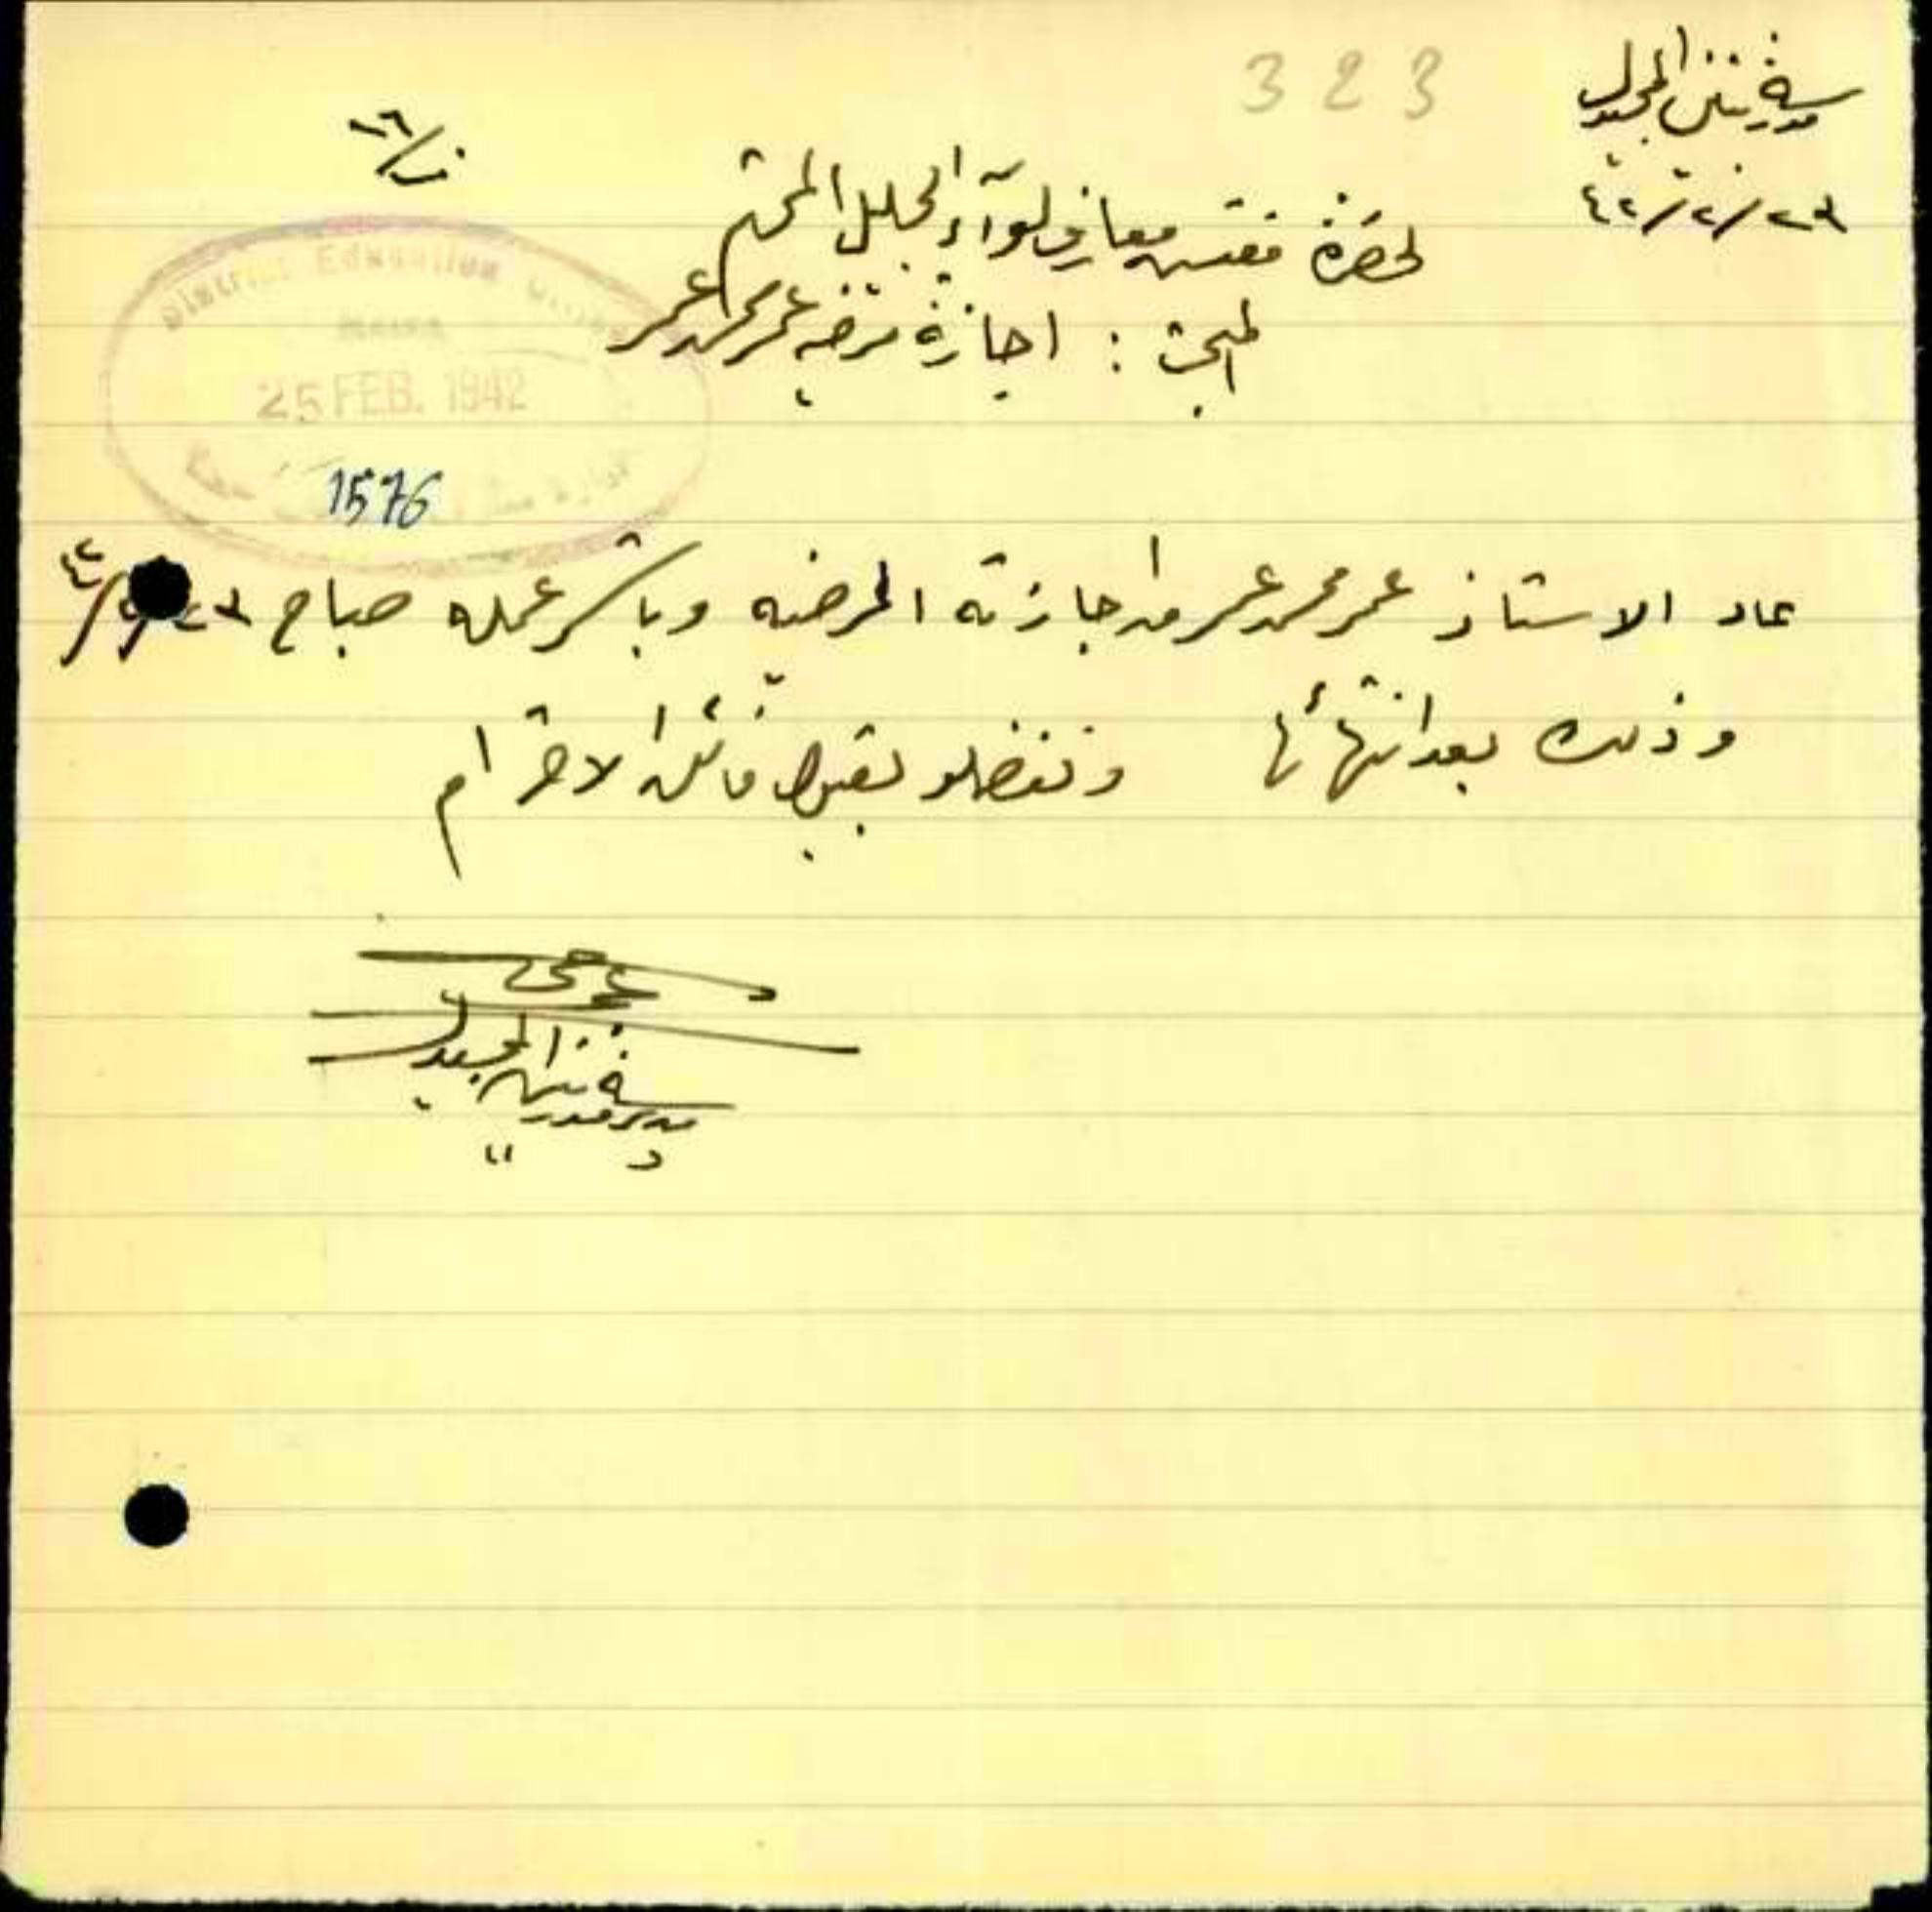 323
مدرسة بنين المجيدل
٤٢/٢/٢٣
ز/١٦
لحضرة مفتش معارف لوآء الجليل المحترم
المبحث : اجازة مرضيه عمر محمد عمر
District Education Office
Haifa
25 FEB. 1942
1576
عاد الاستاذ عمر محمد عمر من اجازته المرضيه وباشر عمله صباح ٢٣/٢/٤٢
وذلك بعد انتهائها وتفضلو بقبول فائق الاحترام
مدير مدرسة بنين المجيدل